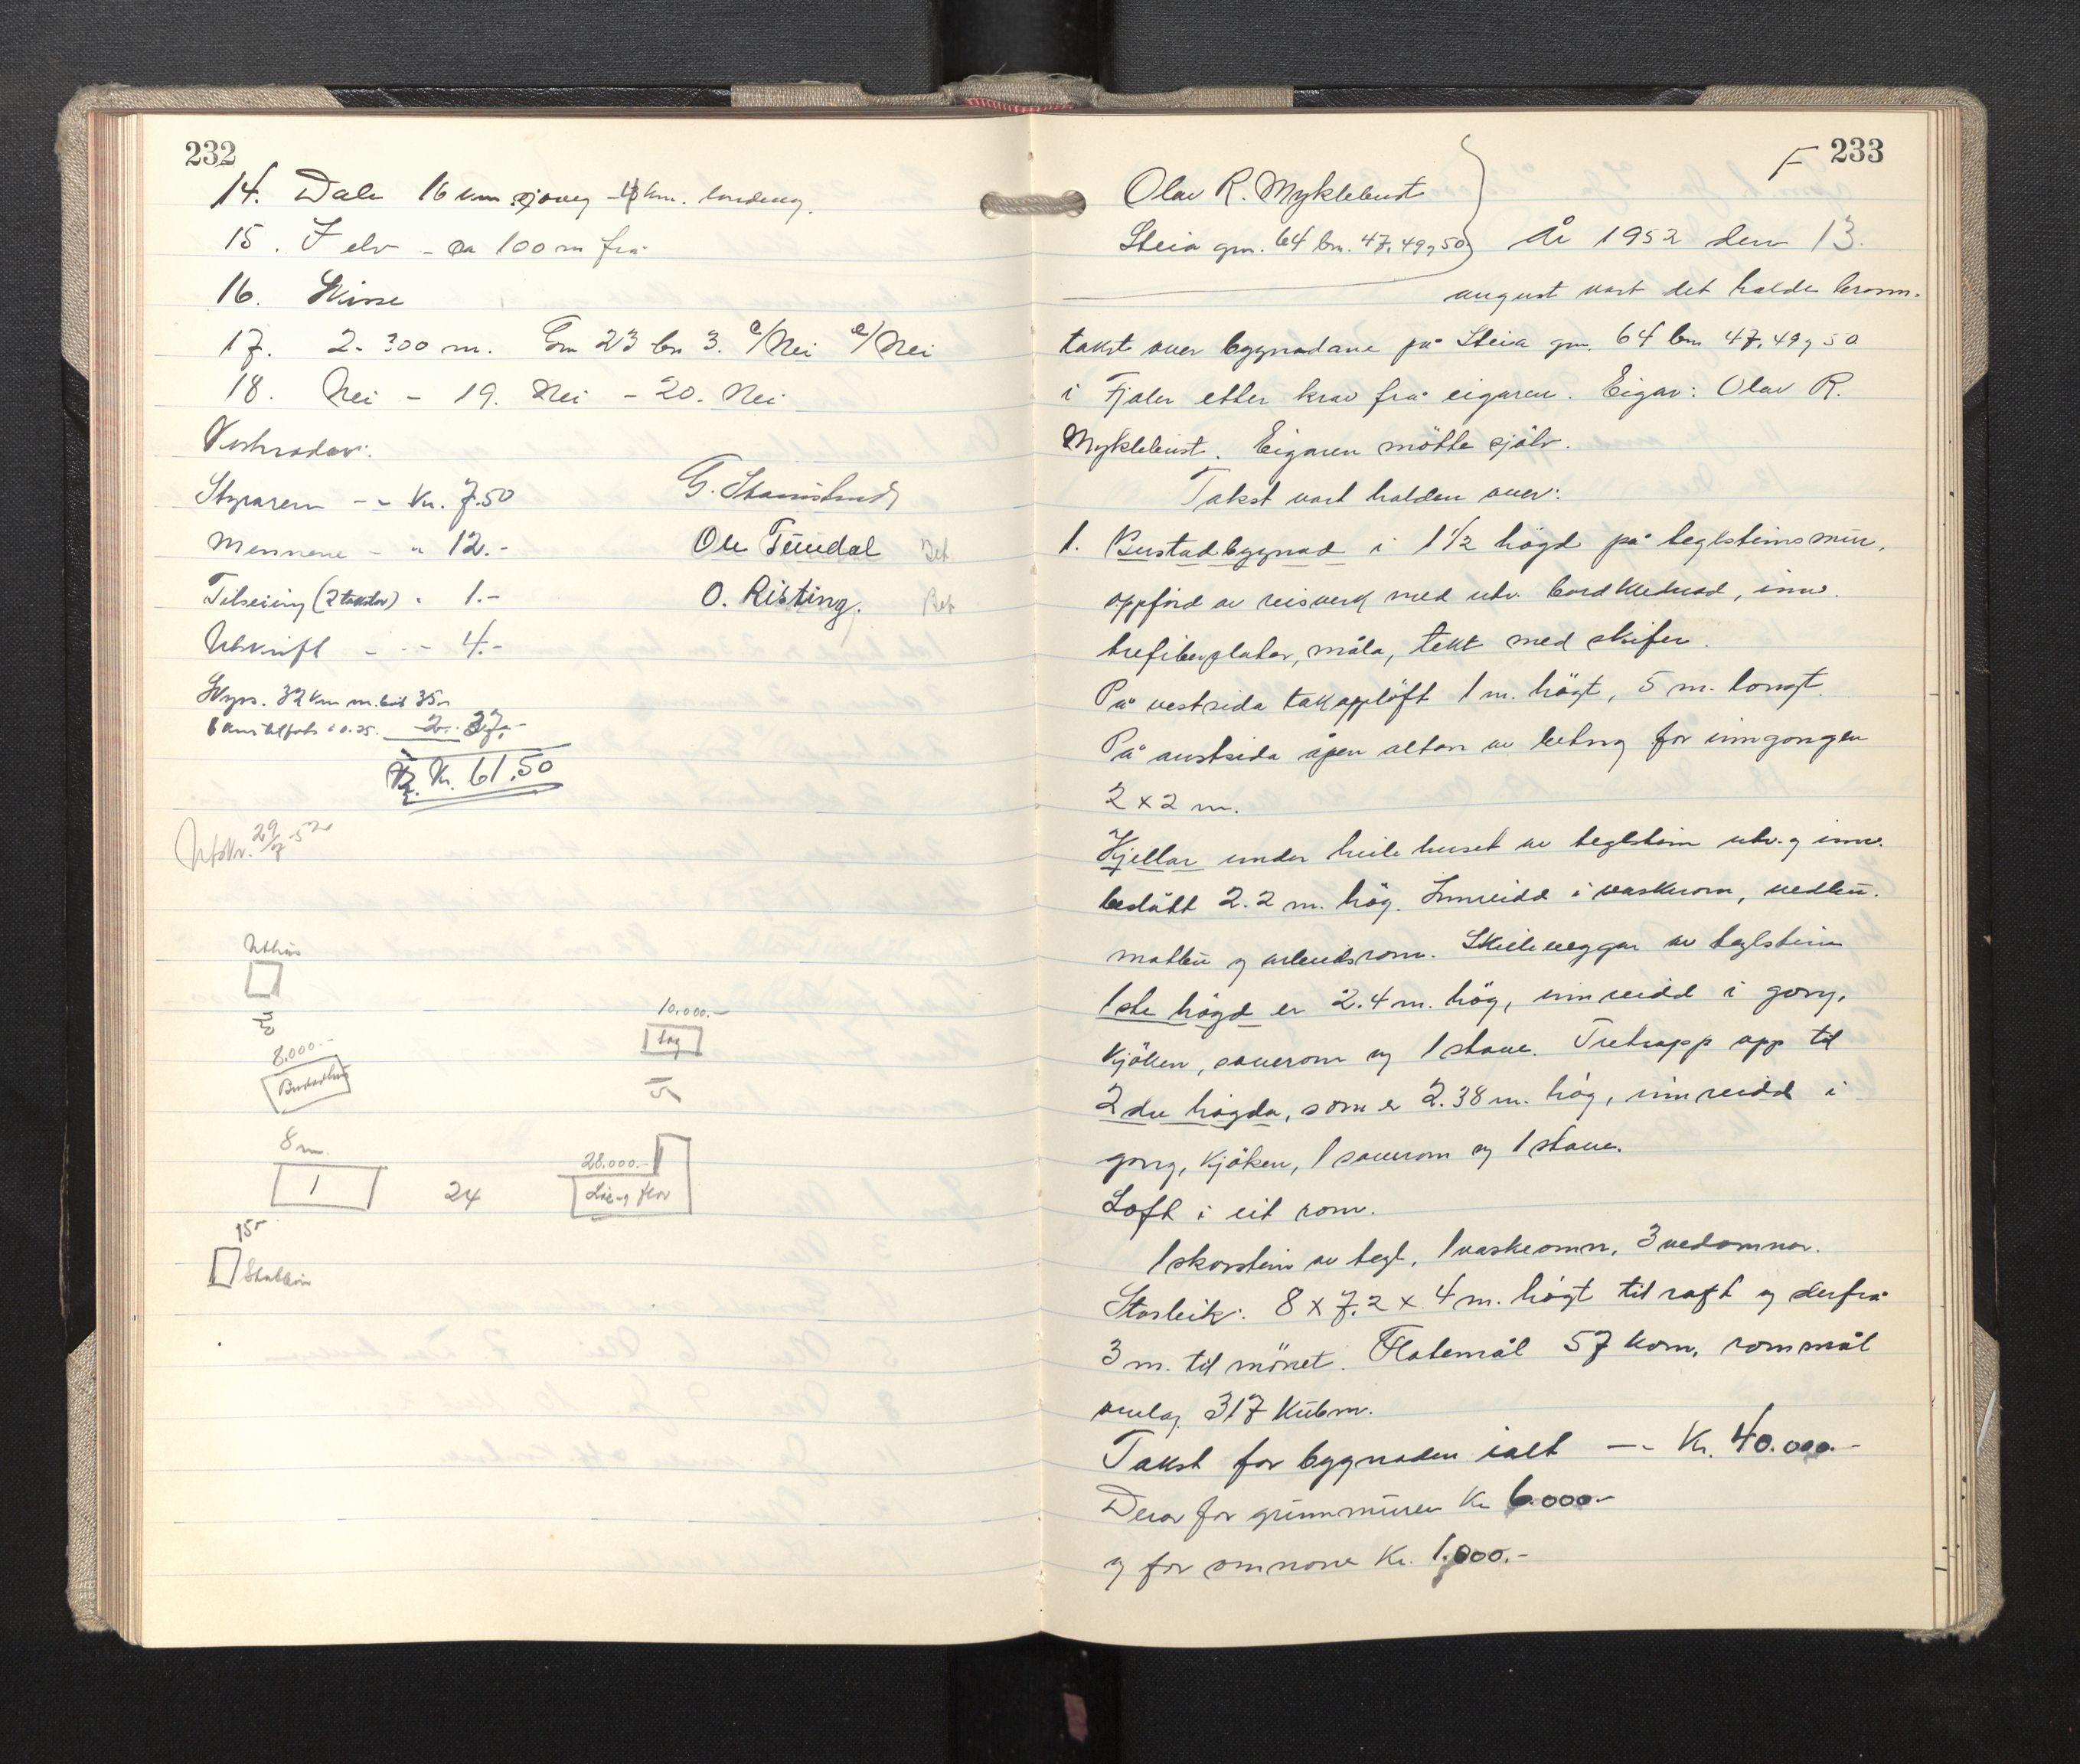 232
14. Dale 16 km sjøveg - 4 km. landeveg.
15. I elv - ca 100 m frå
16. Skisse
17. 2. 300 m. Gm 23 bn 3. c/Nei e/Nei
18. Nei - 19. Nei - 20. Nei
Kostnader:
Styraren - - Kr. 7.50 G.
Mennene - " 12.- Ole Tundal Bet
Tilseiing (2 takstar) " 1.- O. Risting. Bet
Utskrift - - - 4.-
Skyss. 32 km m. bil 35.-
6 km
2.- 37.-
Kr. 61.50
Utskr. 29/7-52
Uthus
8.000.-
Bustadhus
10.000.-
Sag
8 m.
1
24
28.000.-
Løe og flor
15
Stabbur
F 233
Olav R. Myklebust
Steia gm. 64 bn. 47, 49 og 50 År 1952 den 13.
august vart det halde brann-
takst over bygnadane på Steia gm. 64 bn 47, 49 og 50
i Fjaler etter krav frå eigaren. Eigar: Olav R.
Myklebust. Eigaren møtte sjølv.
Takst vart halden over:
1. Bustadbygnad i 1 1/2 høgd på teglsteinsmur,
oppførd av reisverk med utv. bordklednad, innv.
trefiberplater, måla, tekt med skifer.
På vestsida takoppløft 1 m. høgt, 5 m. langt.
På austsida åpen altan av betong for inngongen
2 x 2 m.
Kjellar under heile huset av teglstein utv. og innv.
beslått 2.2 m. høg. Innreidd i vaskerom, vedbu.
matbu og arbeidsrom. Skilleveggar av teglstein
1ste høgd er 2.4 m. høg, innreidd i gong,
kjøken, soverom og 1 stove. Tretrapp opp til
2dre høgda, som er 2.38 m. høg, innreidd i
gong, kjøken, 1 soverom og 1 stove.
Loft i eit rom.
1 skorstein av tegl, 1 vaskeomn, 3 vedomnar.
Storleik: 8 x 7.2 x 4 m. høgt til raft og derfrå
3 m. til mønet. Flatemål 57 kvm, rommål
omlag 317 kubm.
Takst for bygnaden ialt - - Kr. 40.000.-
Derav for grunnmuren Kr 6.000.-
og for omnane Kr. 1.000.-